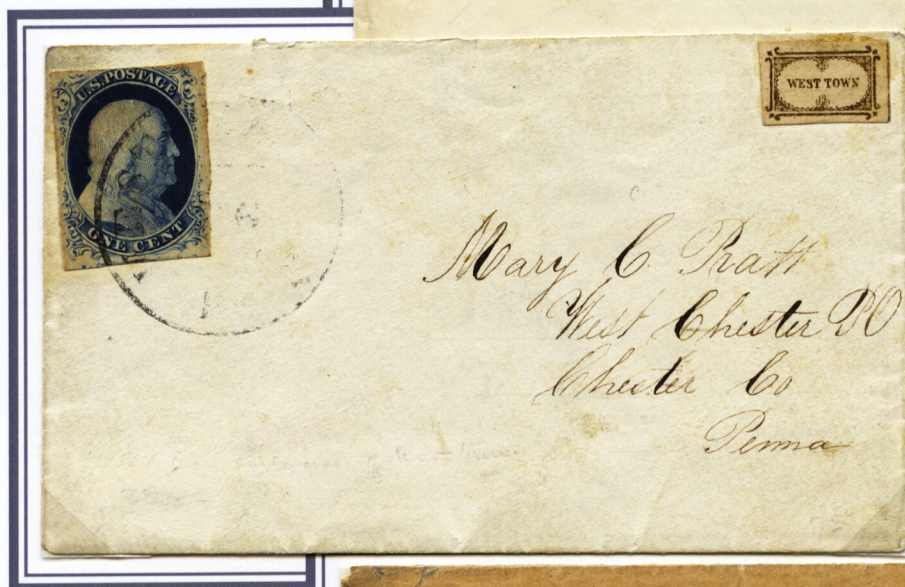 U.S. POSTAGE
ONE CENT
WEST TOWN
Mary C. Pratt
West Chester PO
Chester Co
Penna